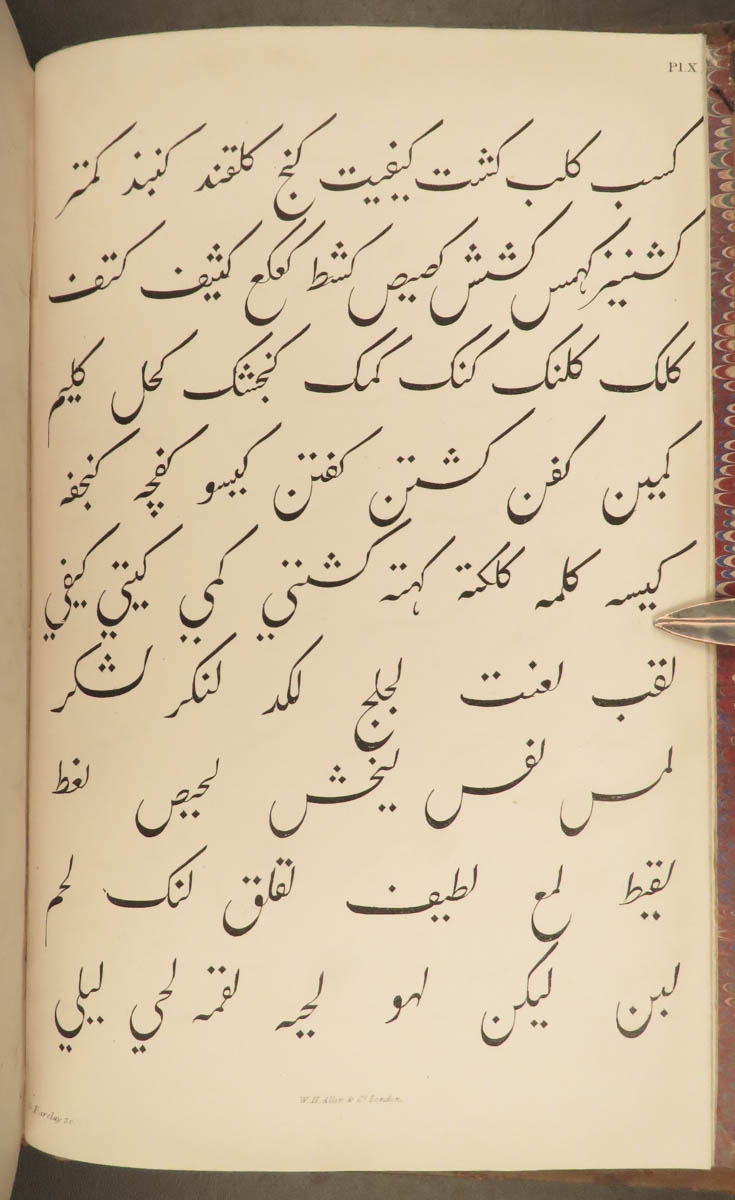 Pl.X
کسب کلب کشت کیفیت کنج کلقند کنبذ کمتر
کشنیز کهمس کشش کصیص کشط کعکع کثیف کتف
کلک کلنک کنک کمک کنجشک کحل کلیم
کمین کفن کشتن کفتن کیسو کفچه کنجفه
کیسه کلمه کلکته کهته کشتي کمي کیتي کیفي
لقب لعنت لجلج لکد لنکر لشکر
لمس لفس لیخش لحیص لغط
لقیط لمع لطیف لقلق لنک لحم
لبن لیکن لهو لحیه لقمه لحي لیلي
W.H.Allen & Co. London.
Barclay sc.